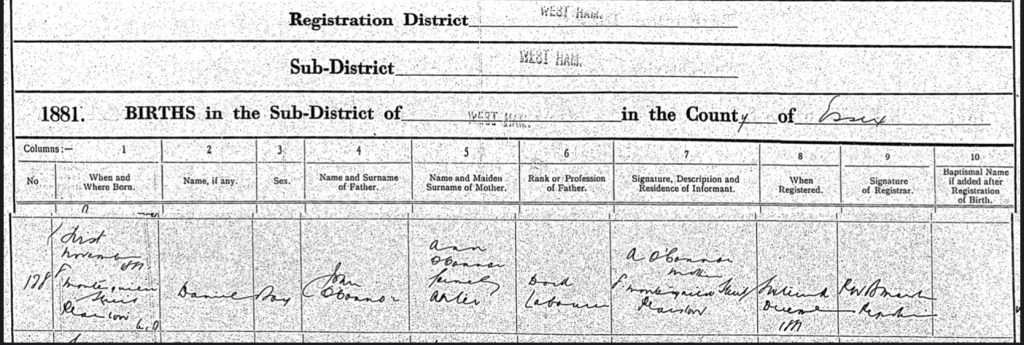 Registration District WEST HAM.
Sub-District WEST HAM.
1881. BIRTHS in the Sub-District of WEST HAM. in the County of Essex
Columns:— 1 2 3 4 5 6 7 8 9 10
No
When and
Where Born.
Name, if any.
Sex.
Name and Surname
of Father.
Name and Maiden
Surname of Mother.
Rank or Profession
of Father.
Signature, Description and
Residence of Informant.
When
Registered.
Signature
of Registrar.
Baptismal Name
if added after
Registration
of Birth.
128
First
November 1881
Plaistow
Daniel
Boy
John
O'Connor
Ann
O'Connor
formerly
Dock
Labourer
A O'Connor
mother
Plaistow
December
1881
Registrar